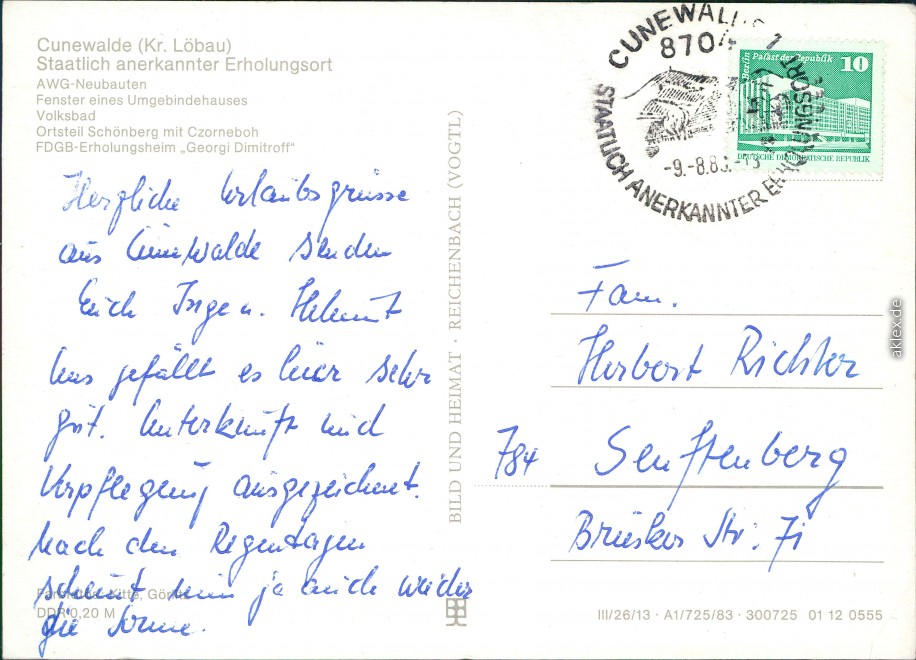 Cunewalde (Kr. Löbau)
Staatlich anerkannter Erholungsort
AWG-Neubauten
Fenster eines Umgebindehauses
Volksbad
Ortsteil Schönberg mit Czorneboh
FDGB-Erholungsheim „Georgi Dimitroff"
Herzliche Urlaubsgrüsse
aus Cunewalde senden
Euch Inge u. Helmut
Uns gefällt es hier sehr
gut. Unterkunft und
Verpflegung ausgezeichnet.
Nach den Regentagen
scheint nun ja auch wieder
die Sonne.
Görlitz
DDR 0,20 M
BILD UND HEIMAT · REICHENBACH (VOGTL)
CUNEWALDE 1
8704
-9.-8.8
STAATLICH ANERKANNTER ERHOLUNGSORT
Berlin Palast der Republik
10
DEUTSCHE DEMOKRATISCHE REPUBLIK
Fam.
Herbert Richter
784 Senftenberg
Str. 71
III/26/13 · A1/725/83 · 300725 01 12 0555
aklex.de